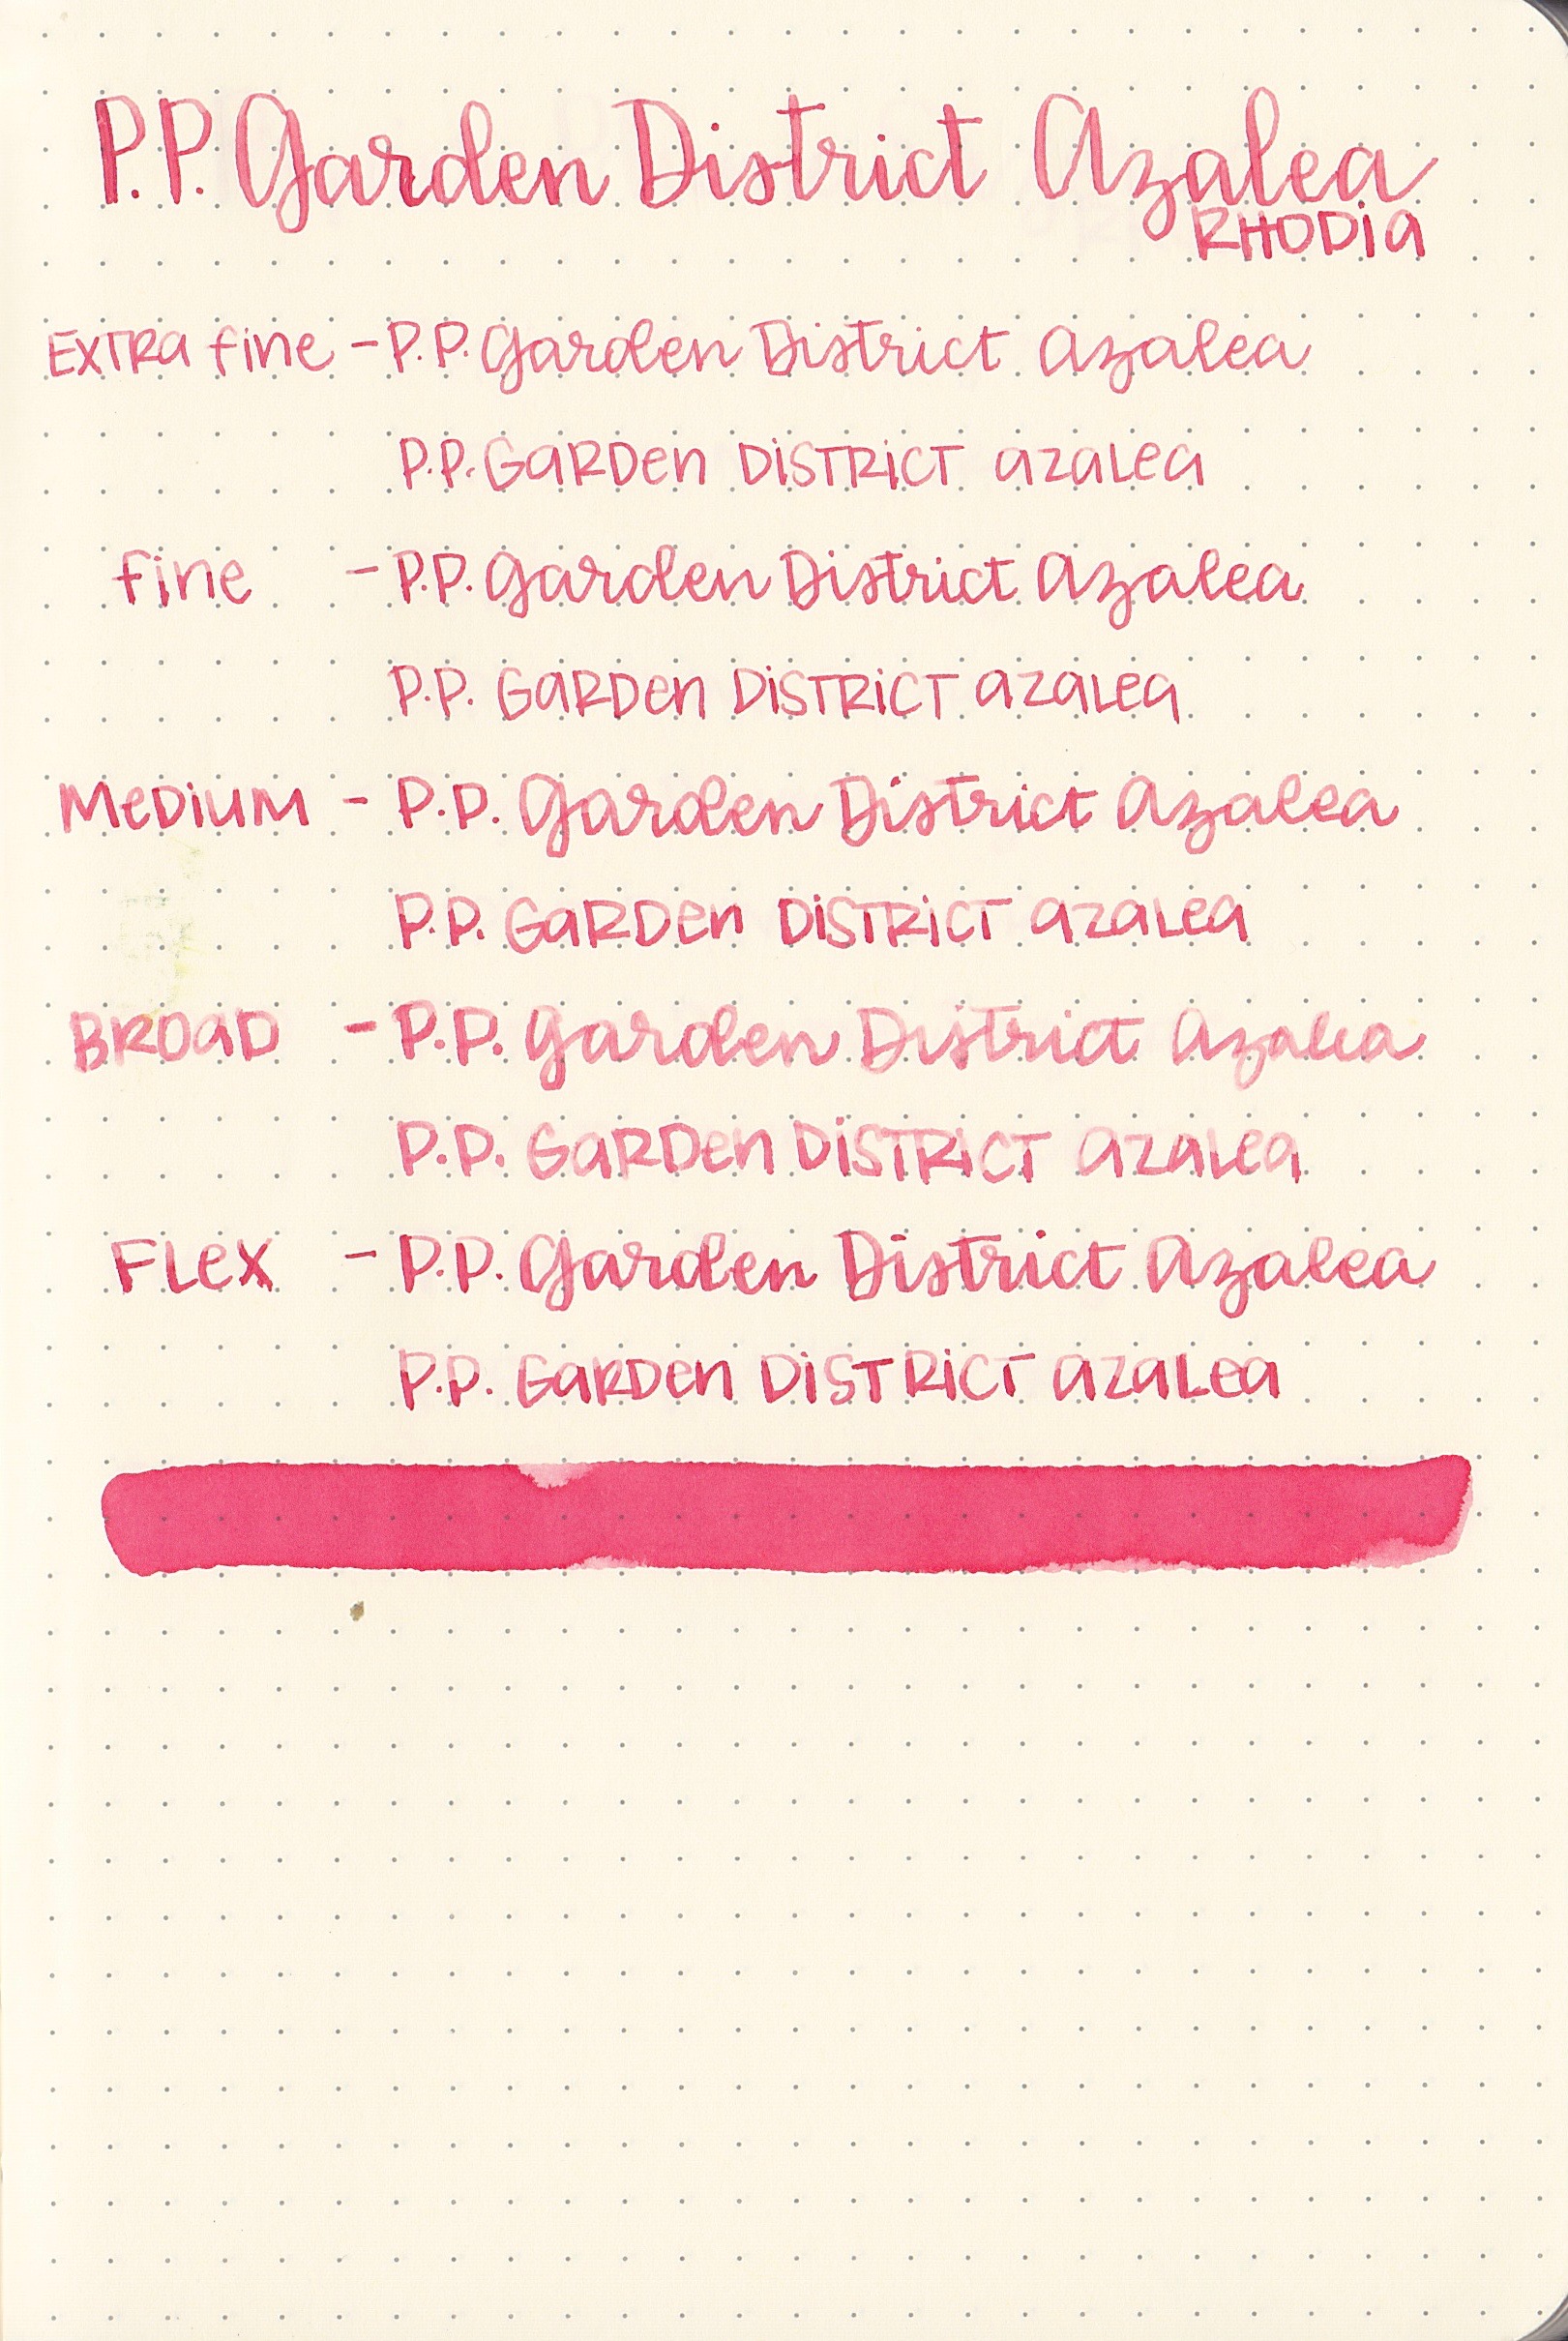 P.P. Garden District Azalea
RHODIA
EXTRA fine - P.P. Garden District Azalea
P.P. GARDEN DISTRICT AZALEA
fine - P.P. Garden District Azalea
P.P. GARDEN DISTRICT AZALEA
MEDIUM - P.P. Garden District Azalea
P.P. GARDEN DISTRICT AZALEA
BROAD - P.P. Garden District Azalea
P.P. GARDEN DISTRICT AZALEA
FLEX - P.P. Garden District Azalea
P.P. GARDEN DISTRICT AZALEA